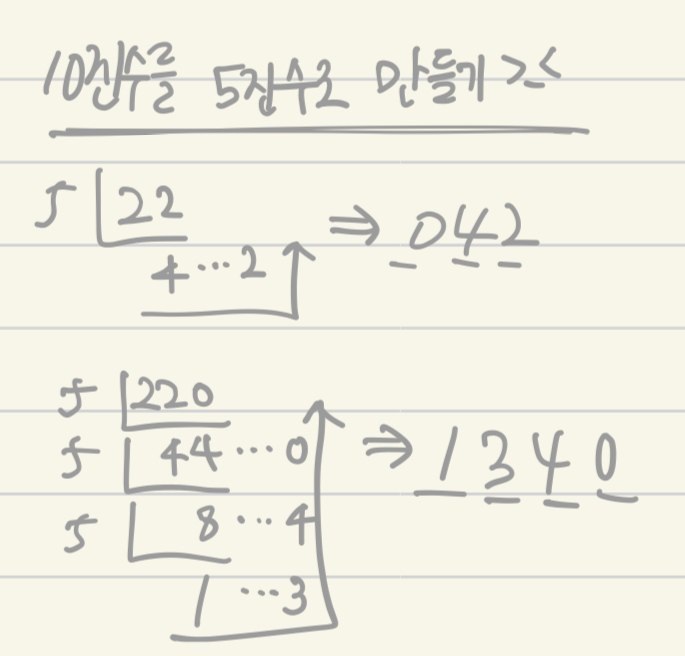 10진수를 5진수로 만들기 >_<
5 22 ⇒ 042
4 ... 2
5 220
5 44 ... 0 ⇒ 1340
5 8 ... 4
1 ... 3